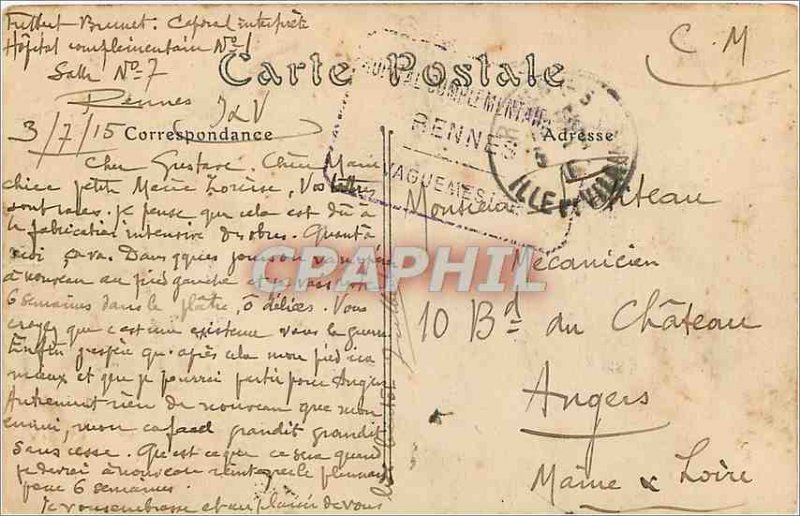 Brunet. Caporal interprète
Hôpital complémentaire No 1
Salle No 7
Rennes I & V
C. M
Carte Postale
HOPITAL COMPLEMENTAIRE
RENNES
VAGUEMESTRE
ILLE ET VILAINE
3/7/15
Correspondance
Cher Gustave. Chère Marie
chère petite Marie Thérèse, Vos lettres
sont rares. Je pense que cela est dû à
la fabrication intensive des obus. Quant à
moi ça va. Dans qques jours on va
à nouveau au pied gauche et
6 semaines dans le plâtre, ô délices. Vous
croyez que c'est une existence vous la guerre
Enfin j'espère qu'après cela mon pied ira
mieux et que je pourrai partir pour Angers
Autrement rien de nouveau que mon
ennui, mon cafard grandit grandit
sans cesse. Qu'est ce que ce sera quand
je devrai à nouveau réintégrer le plumard
pour 6 semaines.
Je vous embrasse et au plaisir de vous
Adresse
Monsieur
Mécanicien
10 Bd du Château
Angers
Maine & Loire
CPAPHIL